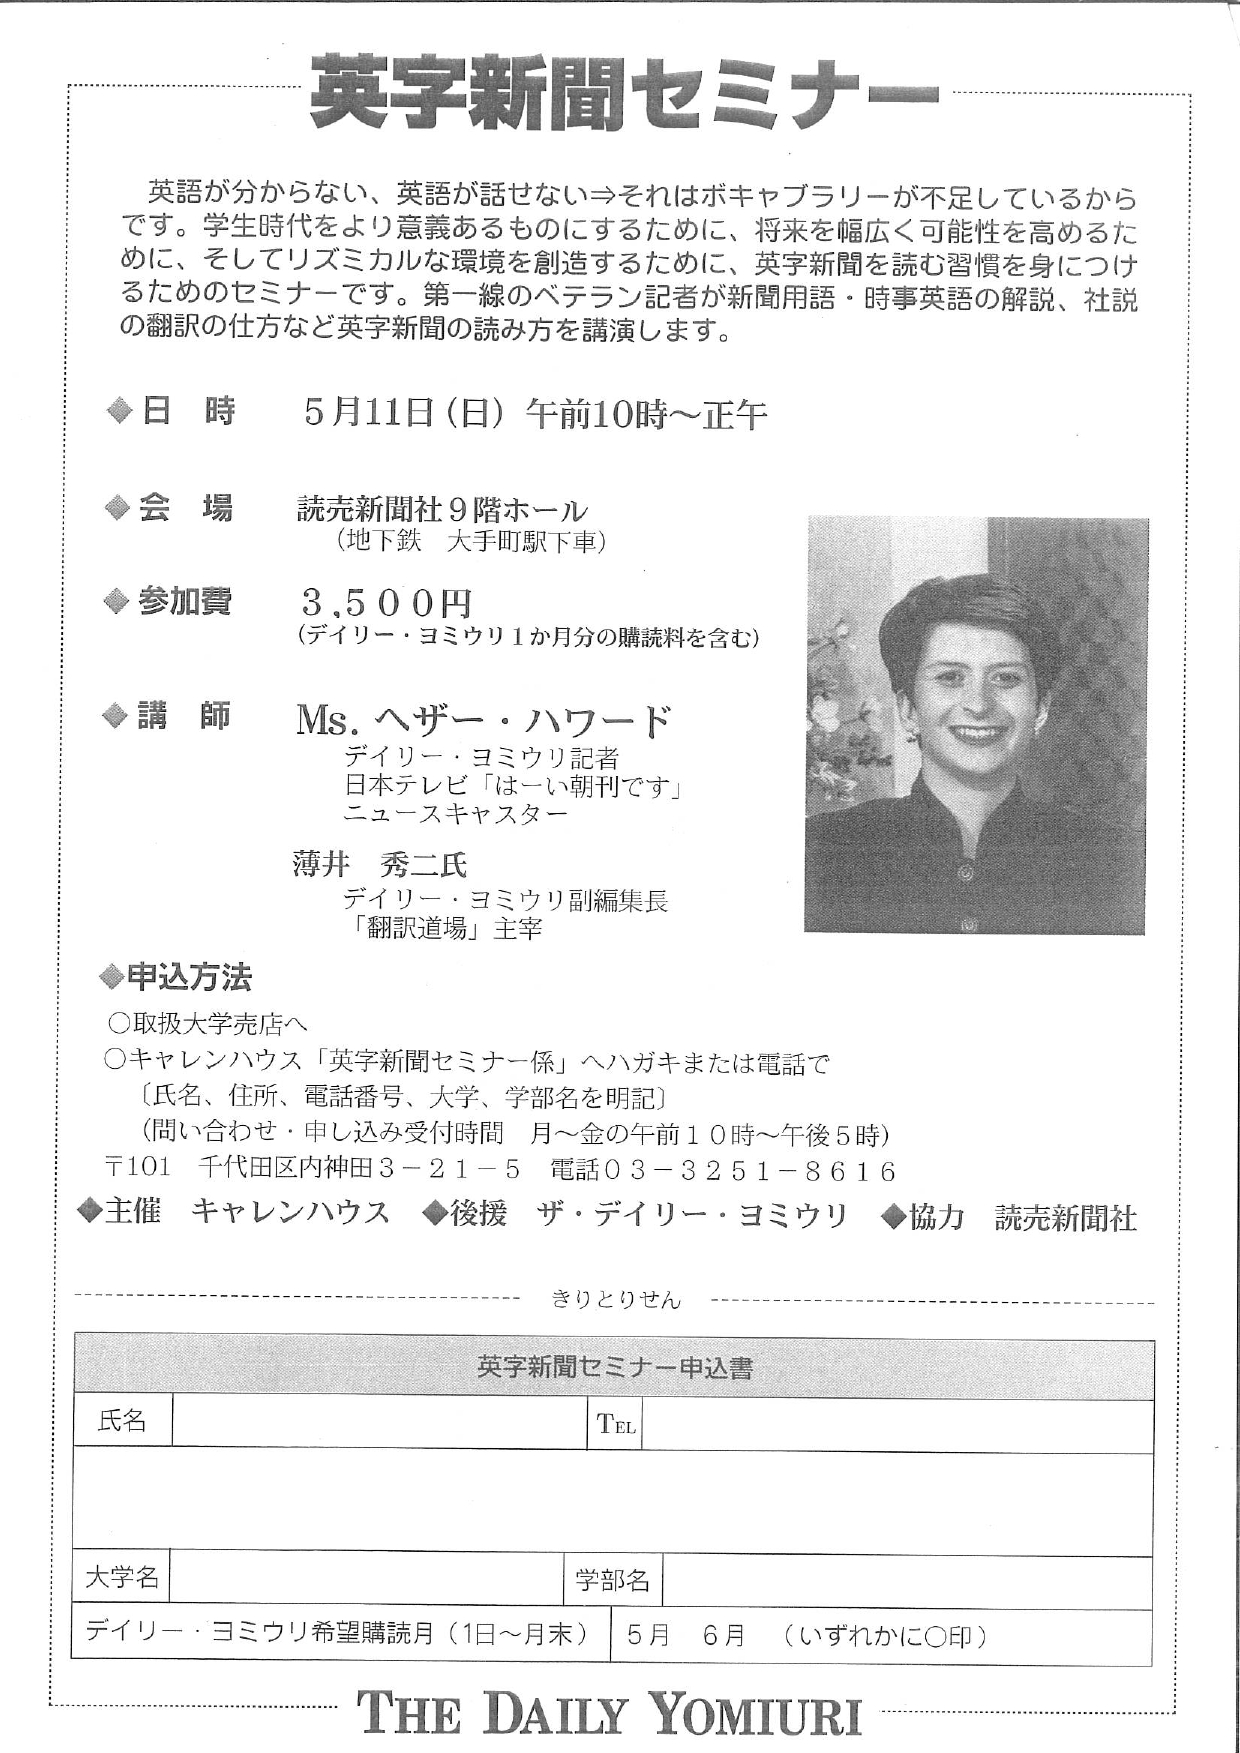 英字新聞セミナー
英語が分からない、英語が話せない⇒それはボキャブラリーが不足しているから
です。学生時代をより意義あるものにするために、将来を幅広く可能性を高めるた
めに、そしてリズミカルな環境を創造するために、英字新聞を読む習慣を身につけ
るためのセミナーです。第一線のベテラン記者が新聞用語・時事英語の解説、社説
の翻訳の仕方など英字新聞の読み方を講演します。
◆日　時　　５月11日（日）午前10時～正午
◆会　場　　読売新聞社９階ホール
（地下鉄　大手町駅下車）
◆参加費　　３,５００円
（デイリー・ヨミウリ１か月分の購読料を含む）
◆講　師　　Ms. ヘザー・ハワード
デイリー・ヨミウリ記者
日本テレビ「はーい朝刊です」
ニュースキャスター
薄井　秀二氏
デイリー・ヨミウリ副編集長
「翻訳道場」主宰
◆申込方法
○取扱大学売店へ
○キャレンハウス「英字新聞セミナー係」へハガキまたは電話で
〔氏名、住所、電話番号、大学、学部名を明記〕
（問い合わせ・申し込み受付時間　月～金の午前１０時～午後５時）
〒101　千代田区内神田３－２１－５　電話０３－３２５１－８６１６
◆主催　キャレンハウス　◆後援　ザ・デイリー・ヨミウリ　◆協力　読売新聞社
きりとりせん
英字新聞セミナー申込書
氏名　TEL
大学名　学部名
デイリー・ヨミウリ希望購読月（1日～月末）　５月　６月　（いずれかに○印）
THE DAILY YOMIURI